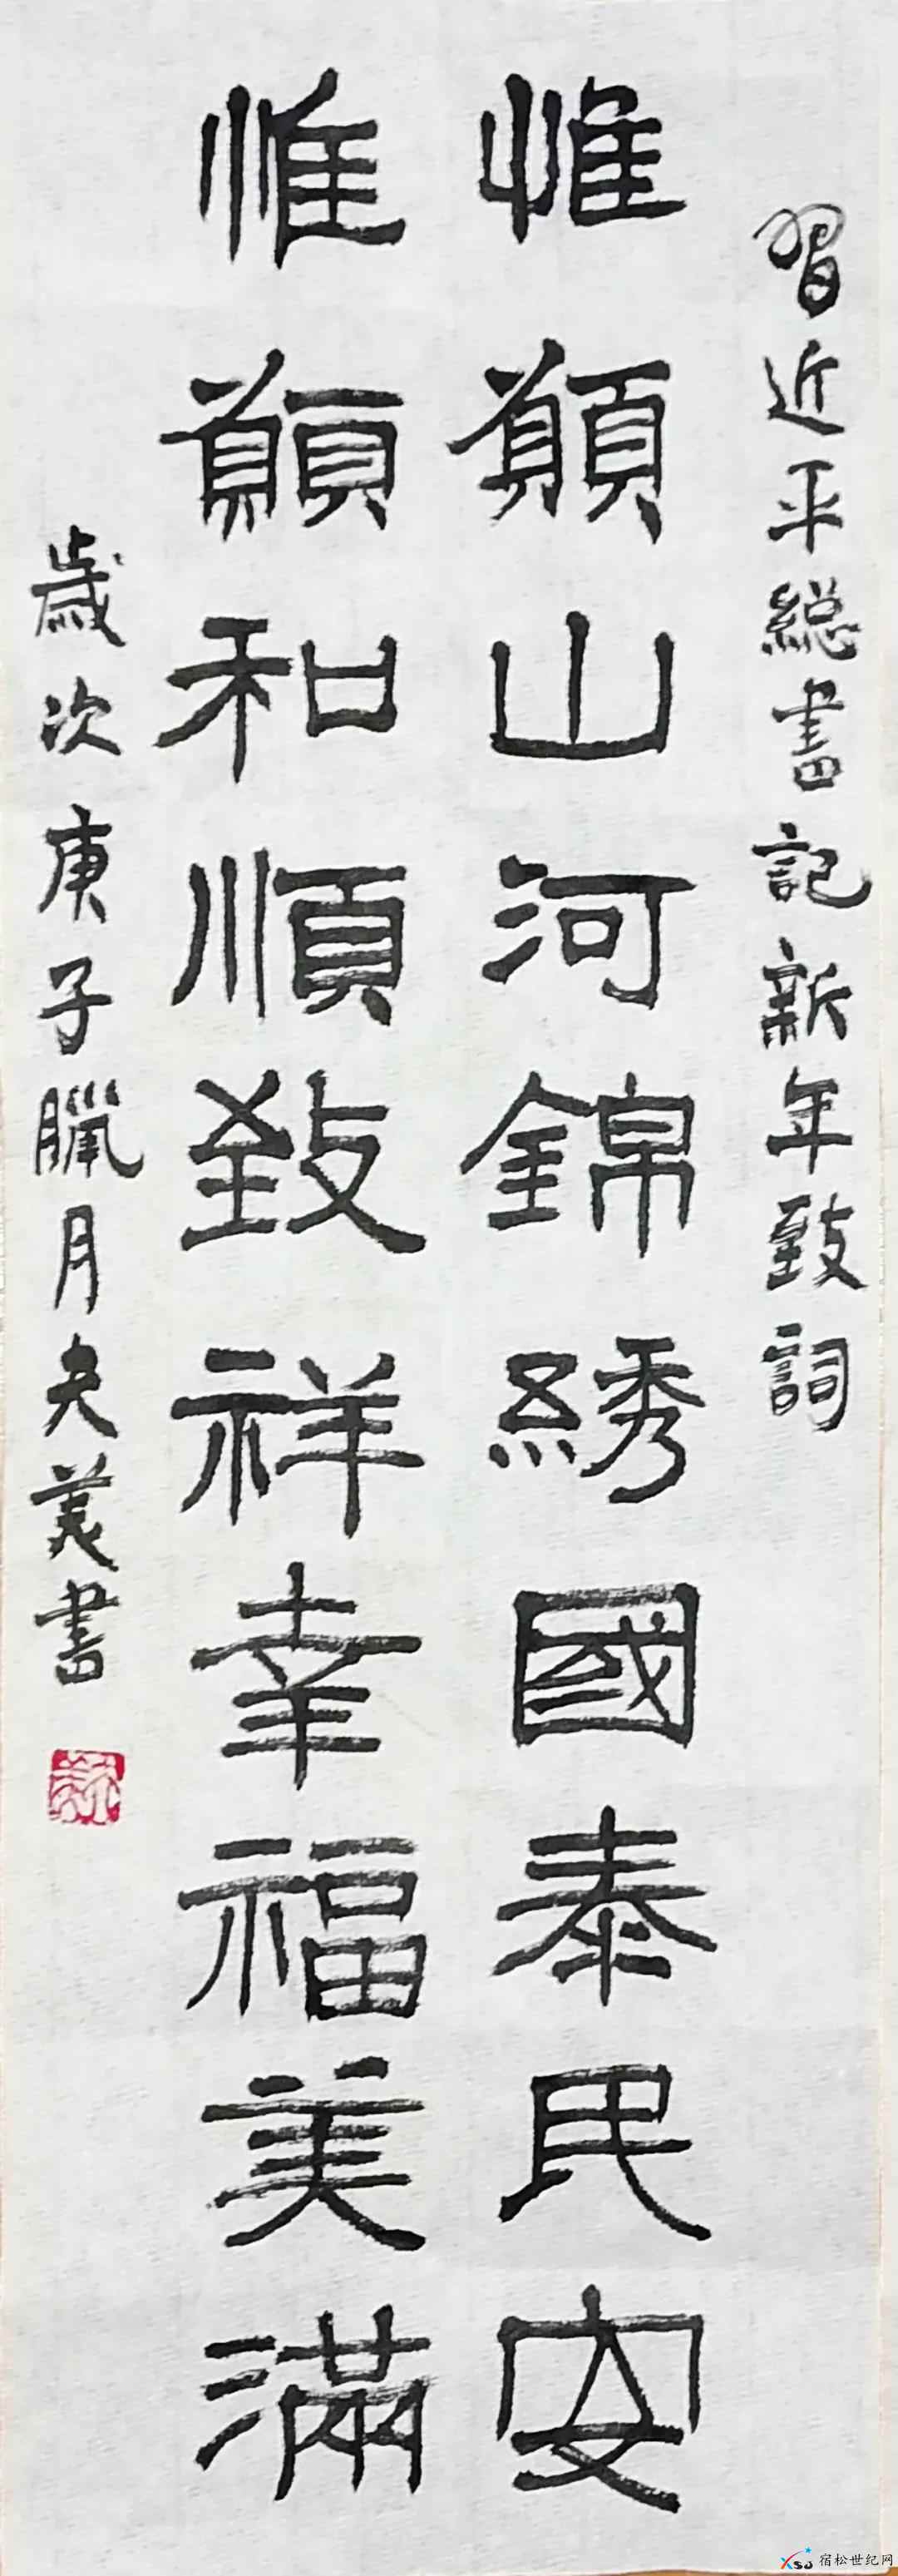 習近平総書記新年致詞
惟願山河錦綉國泰民安
惟願和順致祥幸福美滿
歲次庚子臘月夫美書
宿松世纪网